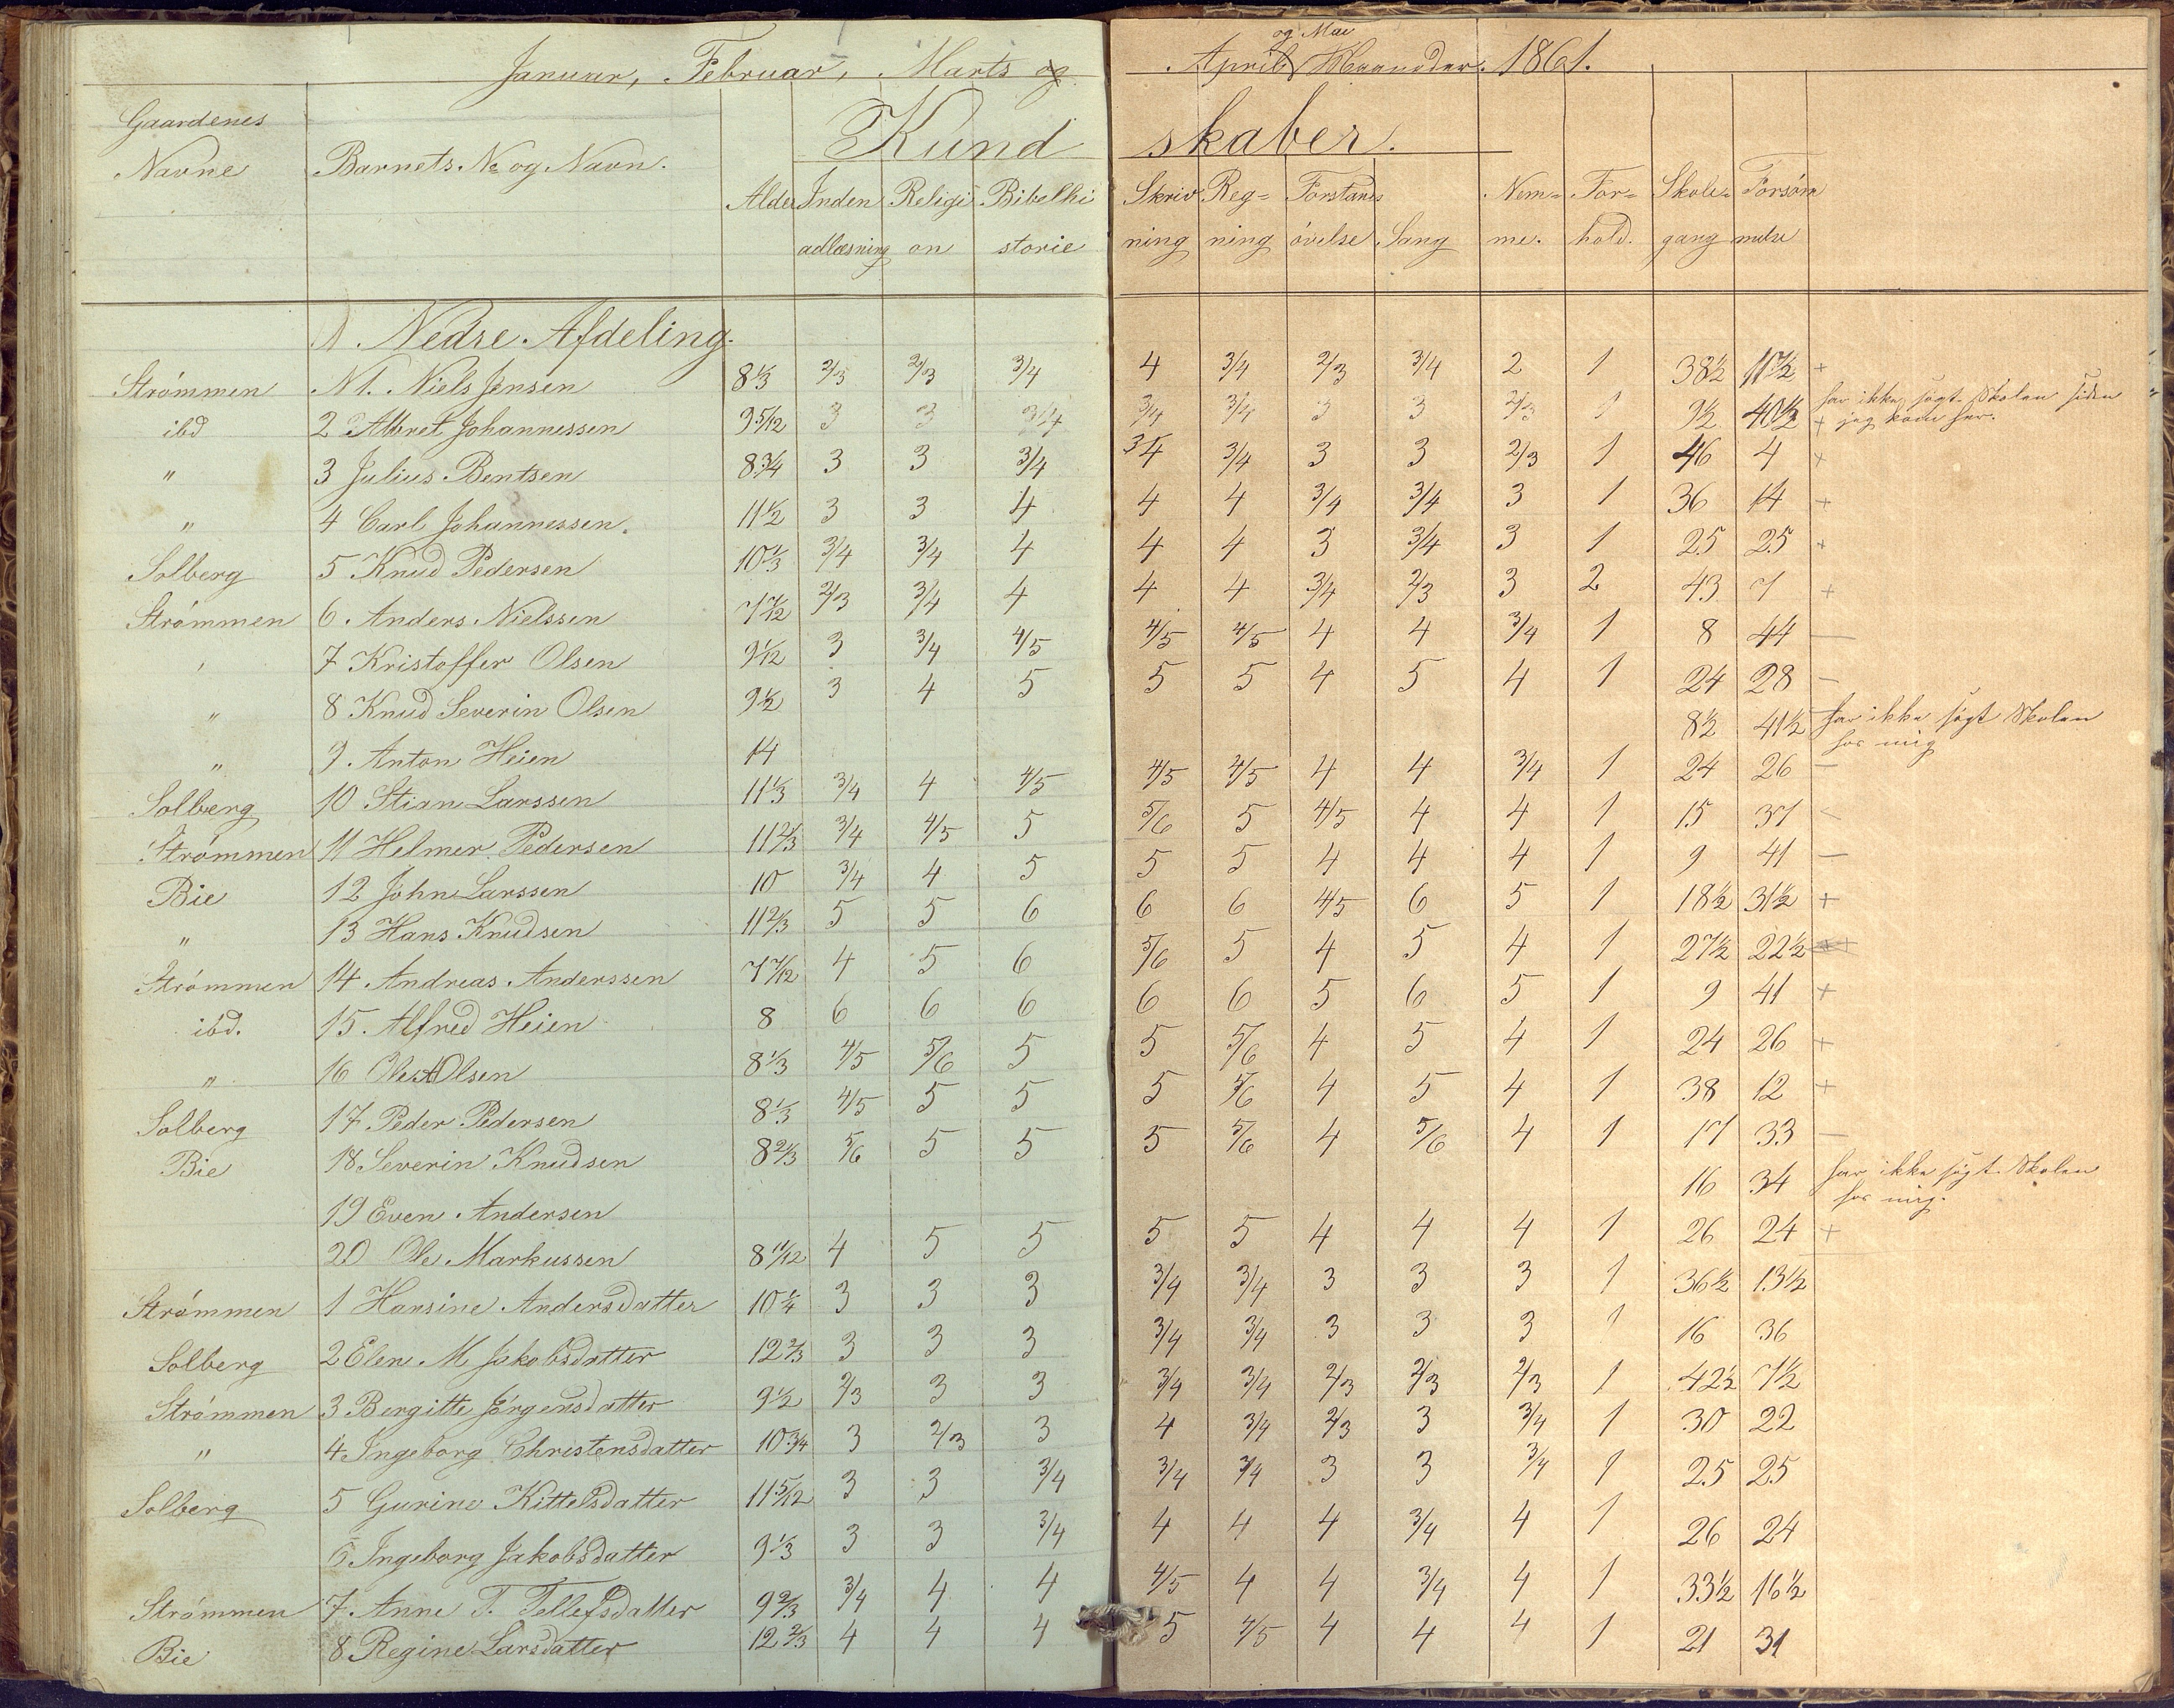 Januar, Februar, Marts og April og Mai Maaneder. 1861.
Gaardenes Navne | Barnets No og Navn. | Alder | Kundskaber.
Indenadlæsning | Religion | Bibelhistorie | Skrivning | Regning | Forstandsøvelse | Sang | Nemme. | Forhold. | Skolegang | Forsømmelse
Nedre Afdeling.
Strömmen | N 1. Niels Jensen | 8 1/3 | 2/3 | 2/3 | 3/4 | 4 | 3/4 | 2/3 | 3/4 | 2 | 1 | 38½ | 11½ | +
ibd | 2 Albret Johannessen | 9 5/12 | 3 | 3 | 3/4 | 3/4 | 3/4 | 3 | 3 | 2/3 | 1 | 9½ | 40½ | + har ikke søgt Skolen siden jeg kom her.
" | 3 Julius Bentsen | 8 3/4 | 3 | 3 | 3/4 | 3/4 | 3/4 | 3 | 3 | 2/3 | 1 | 46 | 4 | +
" | 4 Carl Johannessen. | 11½ | 3 | 3 | 4 | 4 | 4 | 3/4 | 3/4 | 3 | 1 | 36 | 14 | +
Solberg | 5 Knud Pedersen | 10 1/3 | 3/4 | 3/4 | 4 | 4 | 4 | 3 | 3/4 | 3 | 1 | 25 | 25 | +
Strömmen | 6. Anders Nielssen | 7 7/12 | 2/3 | 3/4 | 4 | 4 | 4 | 3/4 | 2/3 | 3 | 2 | 43 | 7 | +
" | 7 Kristoffer Olsen | 9 1/12 | 3 | 3/4 | 4/5 | 4/5 | 4/5 | 4 | 4 | 3/4 | 1 | 8 | 44 | —
" | 8 Knud Severin Olsen | 9½ | 3 | 4 | 5 | 5 | 5 | 4 | 5 | 4 | 1 | 24 | 28 | —
" | 9. Anton Heien | 14 | 8½ | 41½ | har ikke søgt Skolen hos mig
Solberg | 10 Stian Larssen | 11 1/3 | 3/4 | 4 | 4/5 | 4/5 | 4/5 | 4 | 4 | 3/4 | 1 | 24 | 26 | —
Strömmen | 11 Helmer Pedersen | 11 2/3 | 3/4 | 4/5 | 5 | 5/6 | 5 | 4/5 | 4 | 4 | 1 | 15 | 37 | —
Bie | 12 John Larssen | 10 | 3/4 | 4 | 5 | 5 | 5 | 4 | 4 | 4 | 1 | 9 | 41 | —
" | 13 Hans Knudsen | 11 2/3 | 5 | 5 | 6 | 6 | 6 | 4/5 | 6 | 5 | 1 | 18½ | 31½ | +
Strömmen | 14 Andreas Anderssen | 7 7/12 | 4 | 5 | 6 | 5/6 | 5 | 4 | 5 | 4 | 1 | 27½ | 22½ | +
ibd. | 15. Alfred Heien | 8 | 6 | 6 | 6 | 6 | 6 | 5 | 6 | 5 | 1 | 9 | 41 | +
" | 16 Ole A Olsen | 8 1/3 | 4/5 | 5/6 | 5 | 5 | 5/6 | 4 | 5 | 4 | 1 | 24 | 26 | +
Solberg | 17 Peder Pedersen | 8 1/3 | 4/5 | 5 | 5 | 5 | 5/6 | 4 | 5 | 4 | 1 | 38 | 12 | +
Bie | 18 Severin Knudsen | 8 2/3 | 5/6 | 5 | 5 | 5 | 5/6 | 4 | 5/6 | 4 | 1 | 17 | 33 | —
19 Even Andersen | 16 | 34 | har ikke søgt Skolen hos mig.
20 Ole Markussen | 8 11/12 | 4 | 5 | 5 | 5 | 5 | 4 | 4 | 4 | 1 | 26 | 24 | +
Strömmen | 1 Hansine Andersdatter | 10 1/4 | 3 | 3 | 3 | 3/4 | 3/4 | 3 | 3 | 3 | 1 | 36½ | 13½
Solberg | 2 Elen M Jakobsdatter | 12 2/3 | 3 | 3 | 3 | 3/4 | 3/4 | 3 | 3 | 3 | 1 | 16 | 36
Strömmen | 3 Bergitte Jörgensdatter | 9½ | 2/3 | 3 | 3 | 3/4 | 3/4 | 2/3 | 2/3 | 2/3 | 1 | 42½ | 7½
" | 4. Ingeborg Christensdatter | 10 3/4 | 3 | 2/3 | 3 | 4 | 3/4 | 2/3 | 3 | 3/4 | 1 | 30 | 22
Solberg | 5 Gurine Kittelsdatter | 11 5/12 | 3 | 3 | 3/4 | 3/4 | 3/4 | 3 | 3 | 3/4 | 1 | 25 | 25
6 Ingeborg Jakobsdatter | 9 1/3 | 3 | 3 | 3/4 | 4 | 4 | 4 | 3/4 | 4 | 1 | 26 | 24
Strömmen | 7. Anne T. Tellefsdatter | 9 2/3 | 3/4 | 4 | 4 | 4/5 | 4 | 4 | 3/4 | 4 | 1 | 33½ | 16½
Bie | 8 Regine Larsdatter | 12 2/3 | 4 | 4 | 4 | 5 | 4/5 | 4 | 4 | 4 | 1 | 21 | 31